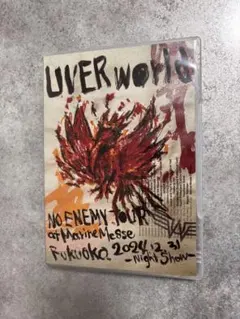 UVERworld
NO ENEMY TOUR
at Marine Messe
FUKUOKA 2024.12.31
-Night Show-